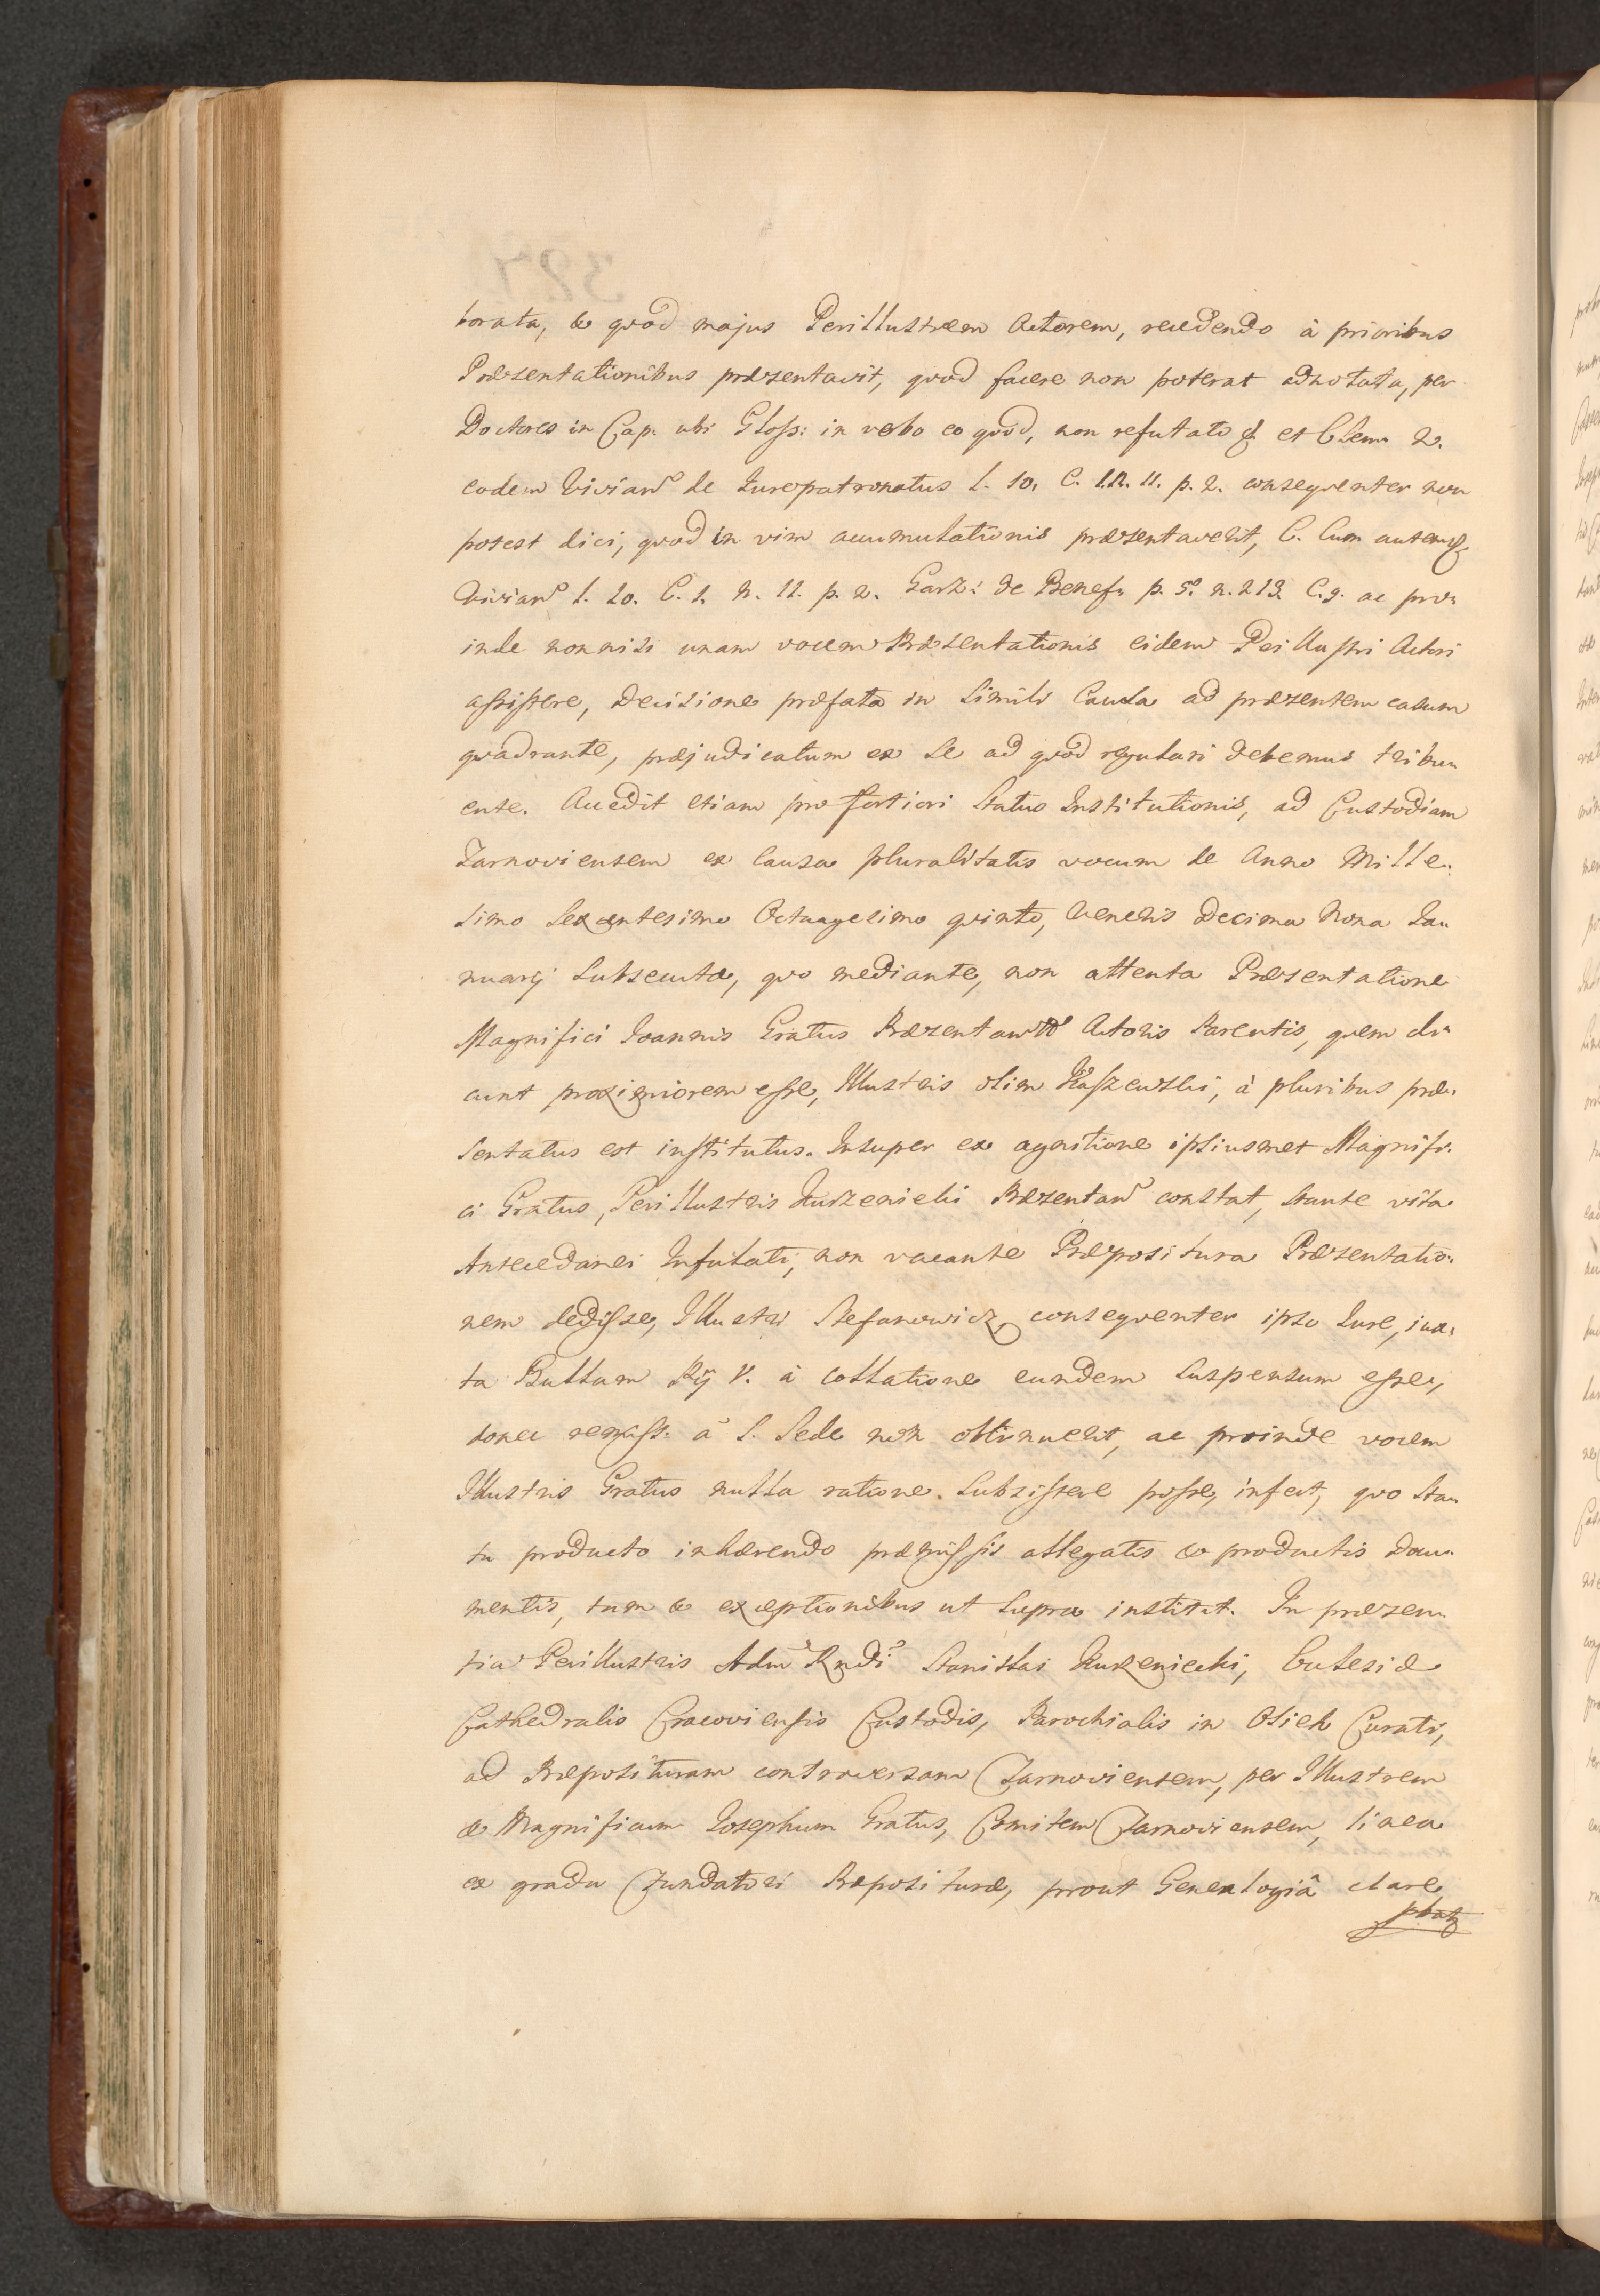 borata, & quòd majus Perillustrem Actorem, recedendo à prioribus
Præsentationibus præsentavit, quod facere non poterat adnotata, per
Doctores in Cap. ubi Gloss: in verbo eo quòd, non refutato & et Clem. 2.
eodem Vivian° de Jurepatronatus l. 10. C. 1. n. 11. p. 2. consequenter non
potest dici, quod in vim accumulationis præsentaverit, C. Cum autem
Vivian° l. 10. C. 1. n. 11. p. 2. Garz: de Benef: p. 5. n. 213. C. 9. ac pro:
inde nonnisi unam vocem Præsentationis eidem Perillustri Actori
assistere, Decisione præfata in Simili Causa ad præsentem casum
quadrante, præjudicatum ex se ad quòd regulari debemus tribu:
ente. Accedit etiam pro fortiori Status Institutionis, ad Custodiam
Tarnoviensem ex Causa pluralitatis vocum de Anno Mille:
simo Sexcentesimo Octuagesimo quinto, Veneris Decima Nona Ja:
nuarij Subsecutæ, quo mediante, non attenta Præsentatione
Magnifici Joannis Gratus Præsentan Actoris Parentis, quem di:
cunt proximiorem esse, Illustris olim Kaszewski, à pluribus præ:
sentatus est institutus. Insuper ex agnitione ipsiusmet Magnifi:
ci Gratus, Perillustris Kurzeniecki Præzentan° constat, stante vita
Antecedanei Infulati, non vacante Præpositura Præsentatio:
nem dedisse, Illustri Stefanowicz, consequenter ipso Jure, iux:
ta Bullam Pij V. à collatione eundem suspensum esse,
donec remiss: à S. Sede non obtinuerit, ac proinde vocem
Illustris Gratus nulla ratione Subsistere posse, infert, quo sta:
tu producto inhærendo præmissis allegatis & productis Docu:
mentis, tum & exceptionibus ut supra institit. In præsen:
tia Perillustris Adm Rndi Stanislai Kurzeniecki, Ecclesiæ
Cathedralis Cracoviensis Custodis, Parochialis in Osiek Curati,
ad Præposituram controversam Tarnoviensem, per Illustrem
& Magnificum Josephum Gratus, Comitem Tarnoviensem, linea
ex gradu Fundatori Præposituræ, prout Genealogiâ clare